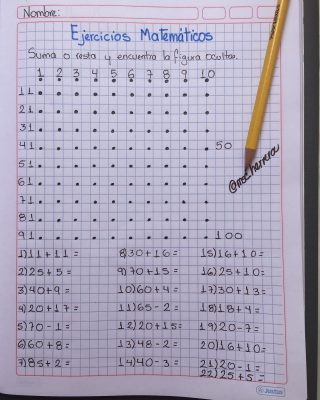 Nombre:
Ejercicios Matemáticos
Suma o resta y encuentra la figura oculta.
1 2 3 4 5 6 7 8 9 10
11
21
31
41 50
51
61
71
81
91 100
@ma.herrera
1) 11+11= 8) 30+16= 15) 16+10=
2) 25+5= 9) 70+15= 16) 25+10=
3) 40+9= 10) 60+4= 17) 30+13=
4) 20+17= 11) 65-2= 18) 18+4=
5) 70-1= 12) 20+15= 19) 20-7=
6) 60+8= 13) 48-2= 20) 16+10=
7) 85+2= 14) 40-3= 21) 20-1=
22) 25+5=
Justus